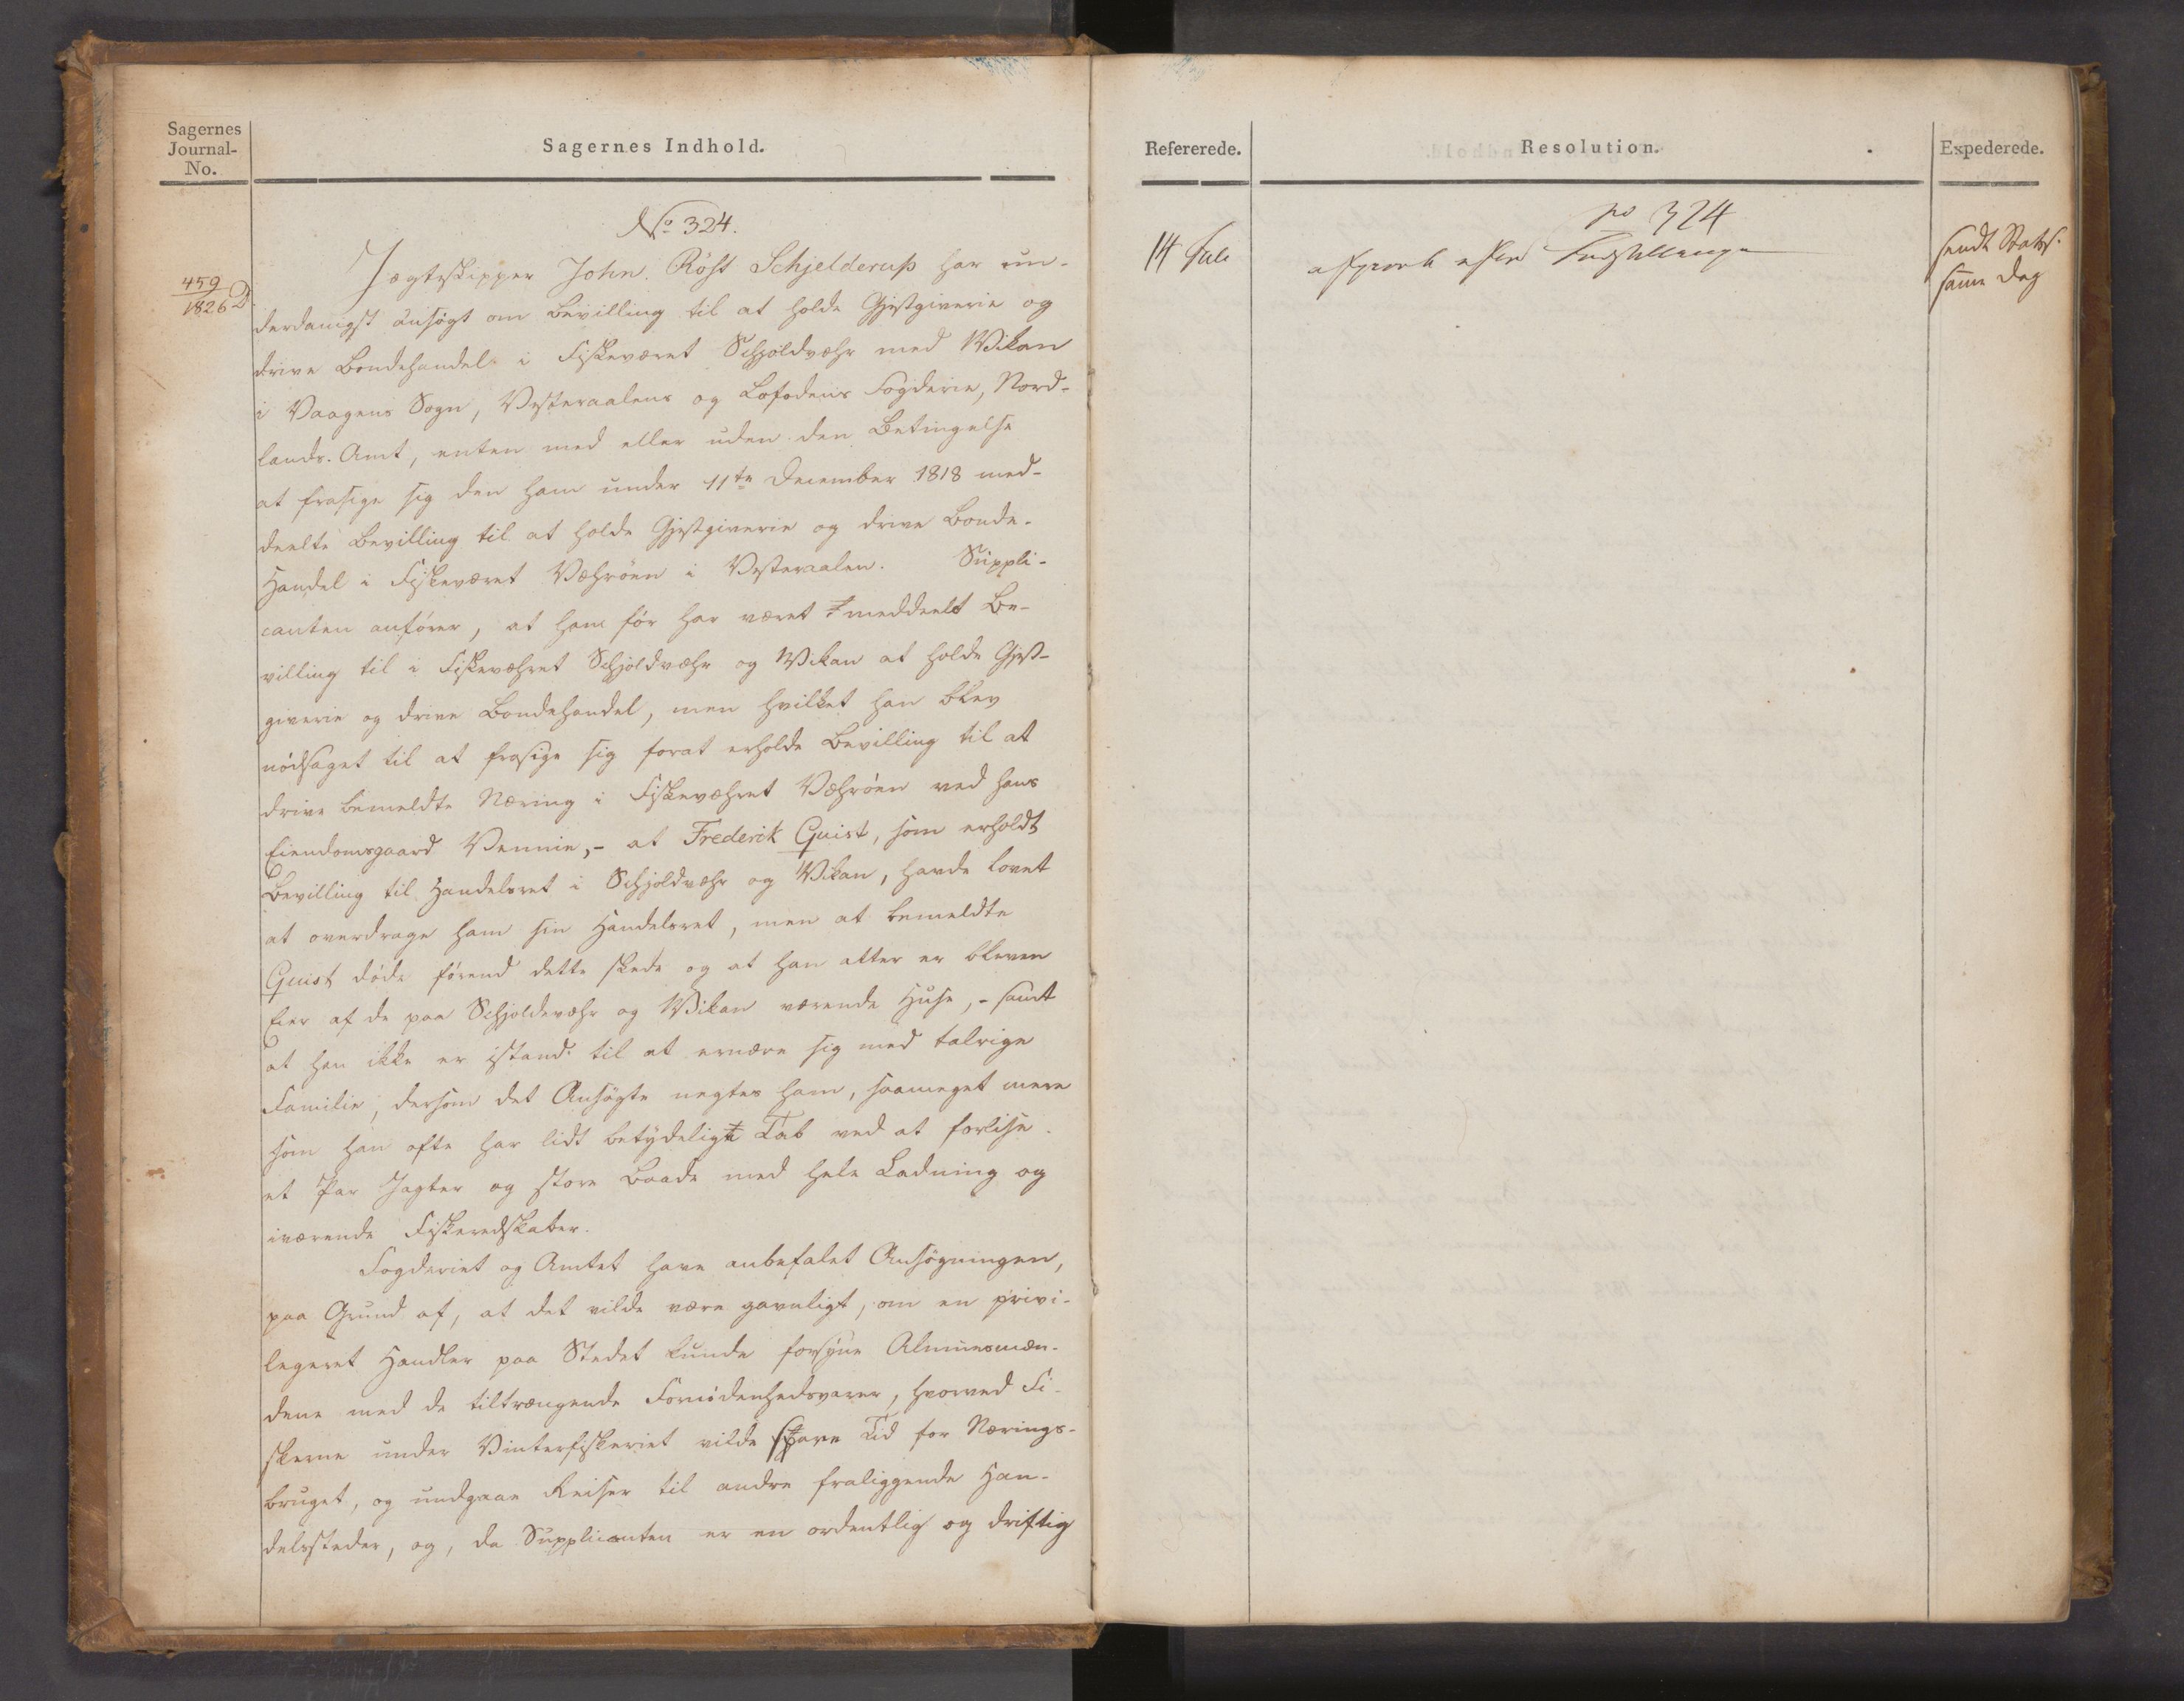 Sagernes
Journal-
No.
Sagernes Indhold.
No 324.
459
1826 D
Jægteskipper John Röst Schjelderup har un-
derdanigst ansögt om Bevilling til at holde Gjestgiverie og
drive Bondehandel i Fiskeværet Schjoldvæhr med Wikan
i Vaagens Sogn, Vesteraalens og Lofodens Fogderie, Nord-
lands Amt, enten med eller uden den Betingelse
at frasige sig den ham under 11te December 1818 med-
deelte Bevilling til at holde Gjestgiverie og drive Bonde-
Handel i Fiskeværet Væhröen i Vesteraalen. Suppli-
canten anförer, at ham för har været meddeelt Be-
villing til i Fiskeværet Schjoldvæhr og Wikan at holde Gjest-
giverie og drive Bondehandel, men hvilket han blev
nödsaget til at frasige sig forat erholde Bevilling til at
drive bemeldte Næring i Fiskeværet Væhröen ved hans
Eiendomsgaard Vennie,- at Frederik Quist, som erholdt
Bevilling til Handelsret i Schjoldvæhr og Wikan, havde lovet
at overdrage ham sin Handelsret, men at bemeldte
Quist döde förend dette skede og at han atter er bleven
Eier af de paa Schjoldevæhr og Wikan værende Huse,- samt
at han ikke er istand til at ernære sig med talrige
Familie, dersom det Ansögte negtes ham, saameget mere
som han ofte har lidt betydeligt Tab ved at forlise
et Par Jagter og store Baade med hele Ladning og
iværende Fiskeredskaber.
Fogderiet og Amtet have anbefalet Ansögningen,
paa Grund af, at det vilde være gavnligt, om en privi-
legeret Handler paa Stedet kunde forsÿne Almuesmæn-
dene med de tiltrængende Fornödenhedsvarer, hvorved Fi-
skerne under Vinterfiskeriet vilde spare Tid for Nærings-
bruget, og undgaae Reiser til andre fraliggende Han-
delssteder, og, da Supplicanten er en ordentlig og driftig
Refererede.
Resolution.
Expederede.
14 Juli
No 324
afgjort efter Indstillingen
sendt Stats.
samme Dag